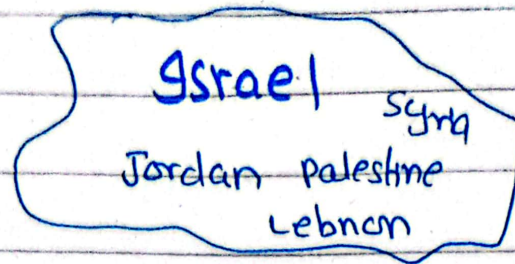 Israel
Syria
Jordan Palestine
Lebnon